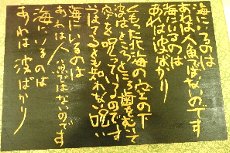 海にゐるのは
あれは人魚ではないのです
海にゐるのは
あれは波ばかり
くもった北海の空の下
波はところどころ歯をむいて
空を呪ってゐるのです
いつはてるとも知れない呪い
海にゐるのは
あれは人魚ではないのです
海にゐるのは
あれは波ばかり